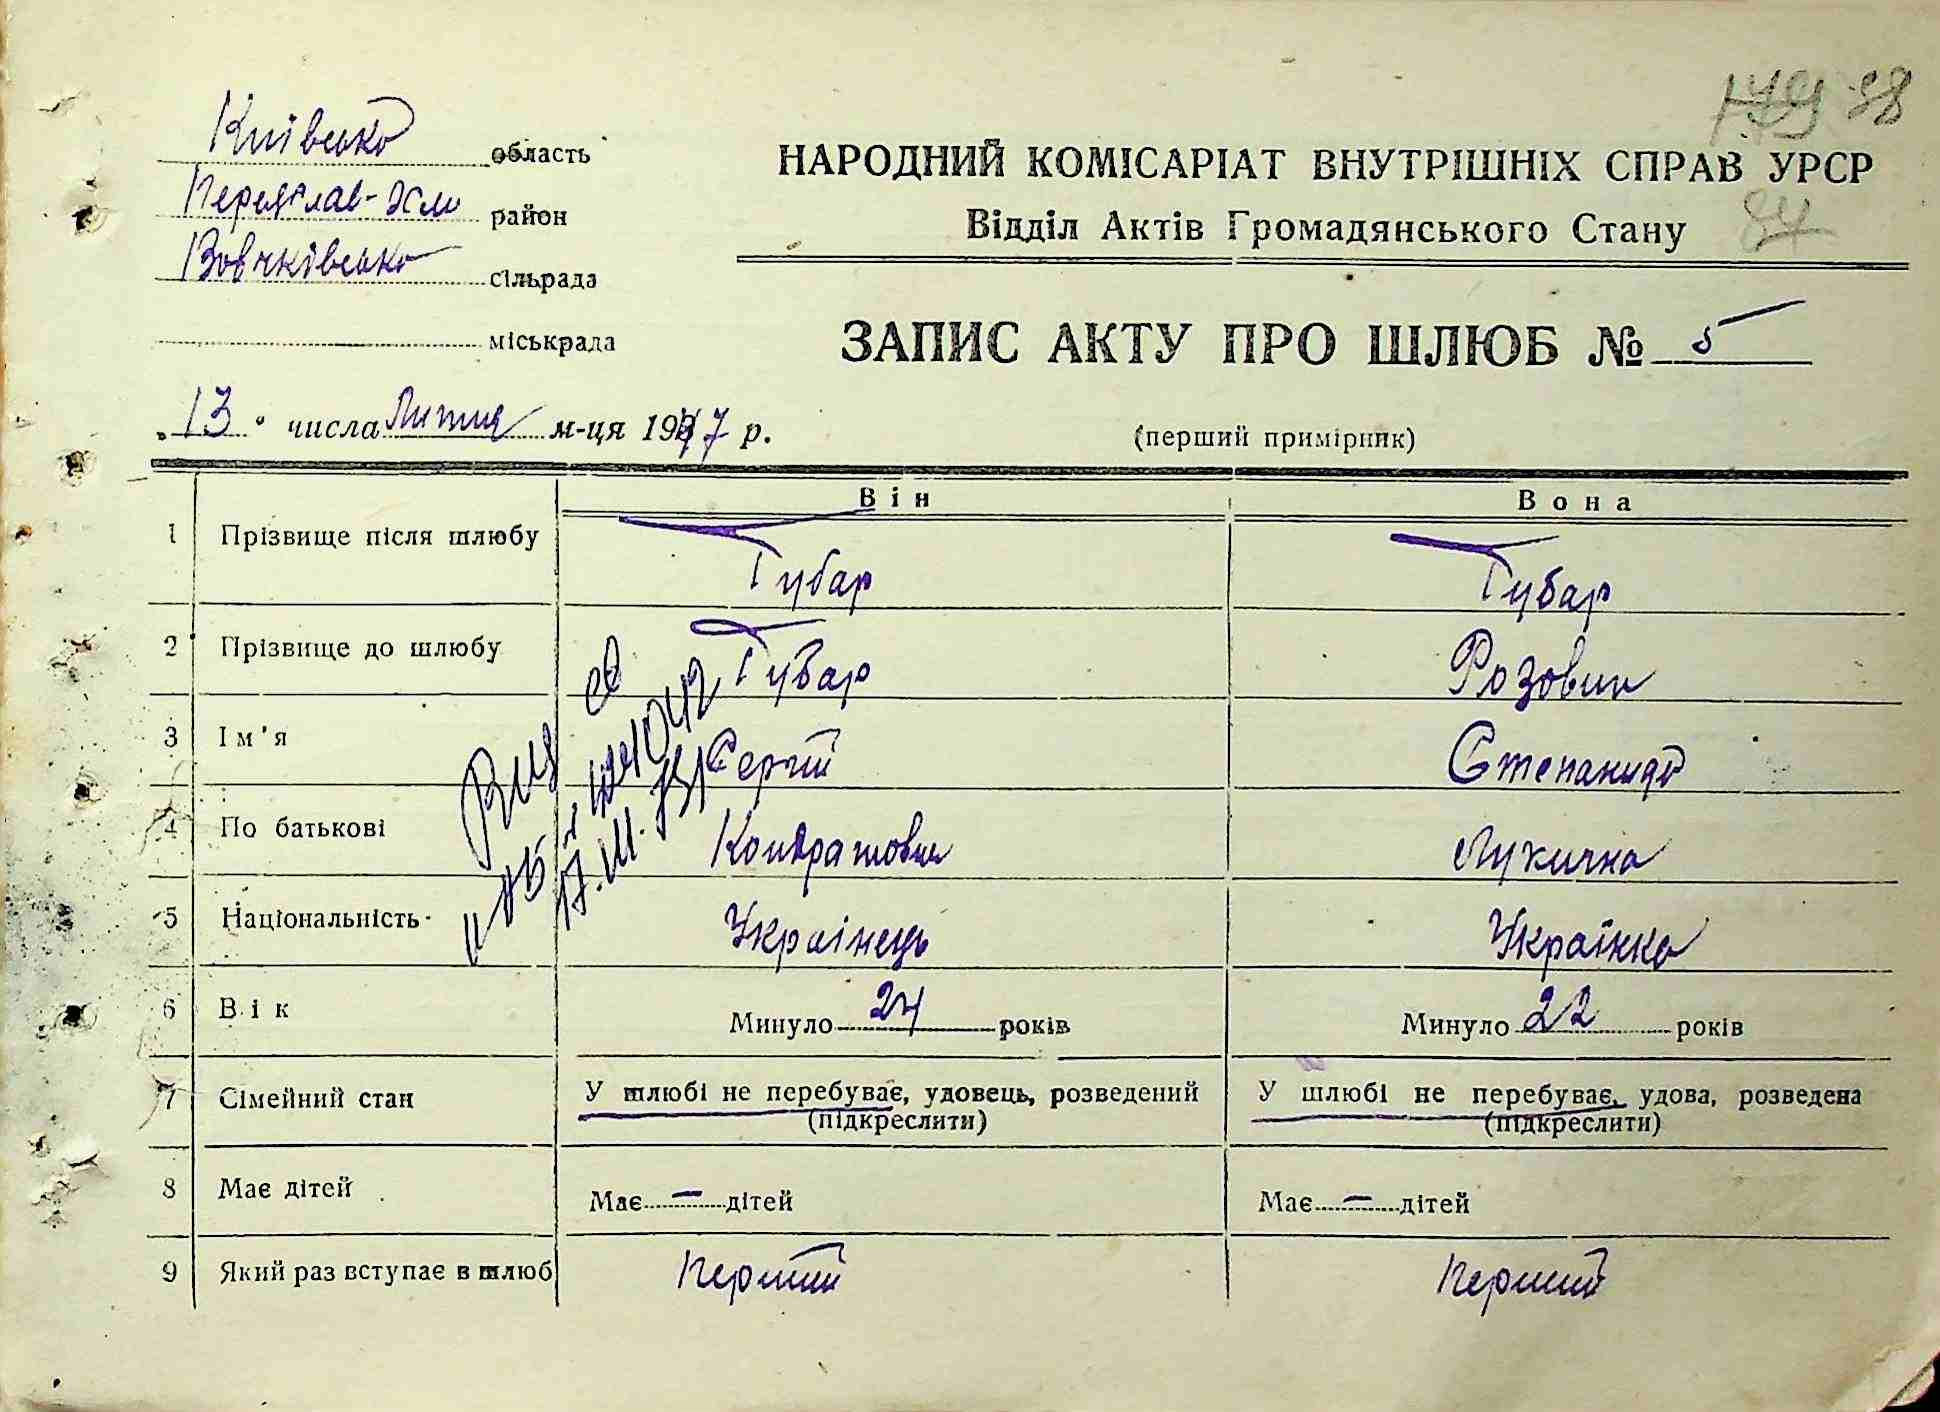 179 98
Київська область
НАРОДНИЙ КОМІСАРІАТ ВНУТРІШНІХ СПРАВ УРСР
Переяслав-Хм район
Відділ Актів Громадянського Стану 84
Вовчківська сільрада
міськрада
ЗАПИС АКТУ ПРО ШЛЮБ № 5
„13“ числа Липня м-ця 1947 р.
(перший примірник)
Він Вона
1 Прізвище після шлюбу Губар Губар
2 Прізвище до шлюбу Губар Розовик
3 Ім'я Сергій Степанида
4 По батькові Кондратович Лукична
5 Національність Українець Українка
6 Вік Минуло 24 років Минуло 22 років
7 Сімейний стан У шлюбі не перебуває, удовець, розведений (підкреслити) У шлюбі не перебуває, удова, розведена (підкреслити)
8 Має дітей Має — дітей Має — дітей
9 Який раз вступає в шлюб Перший Перший